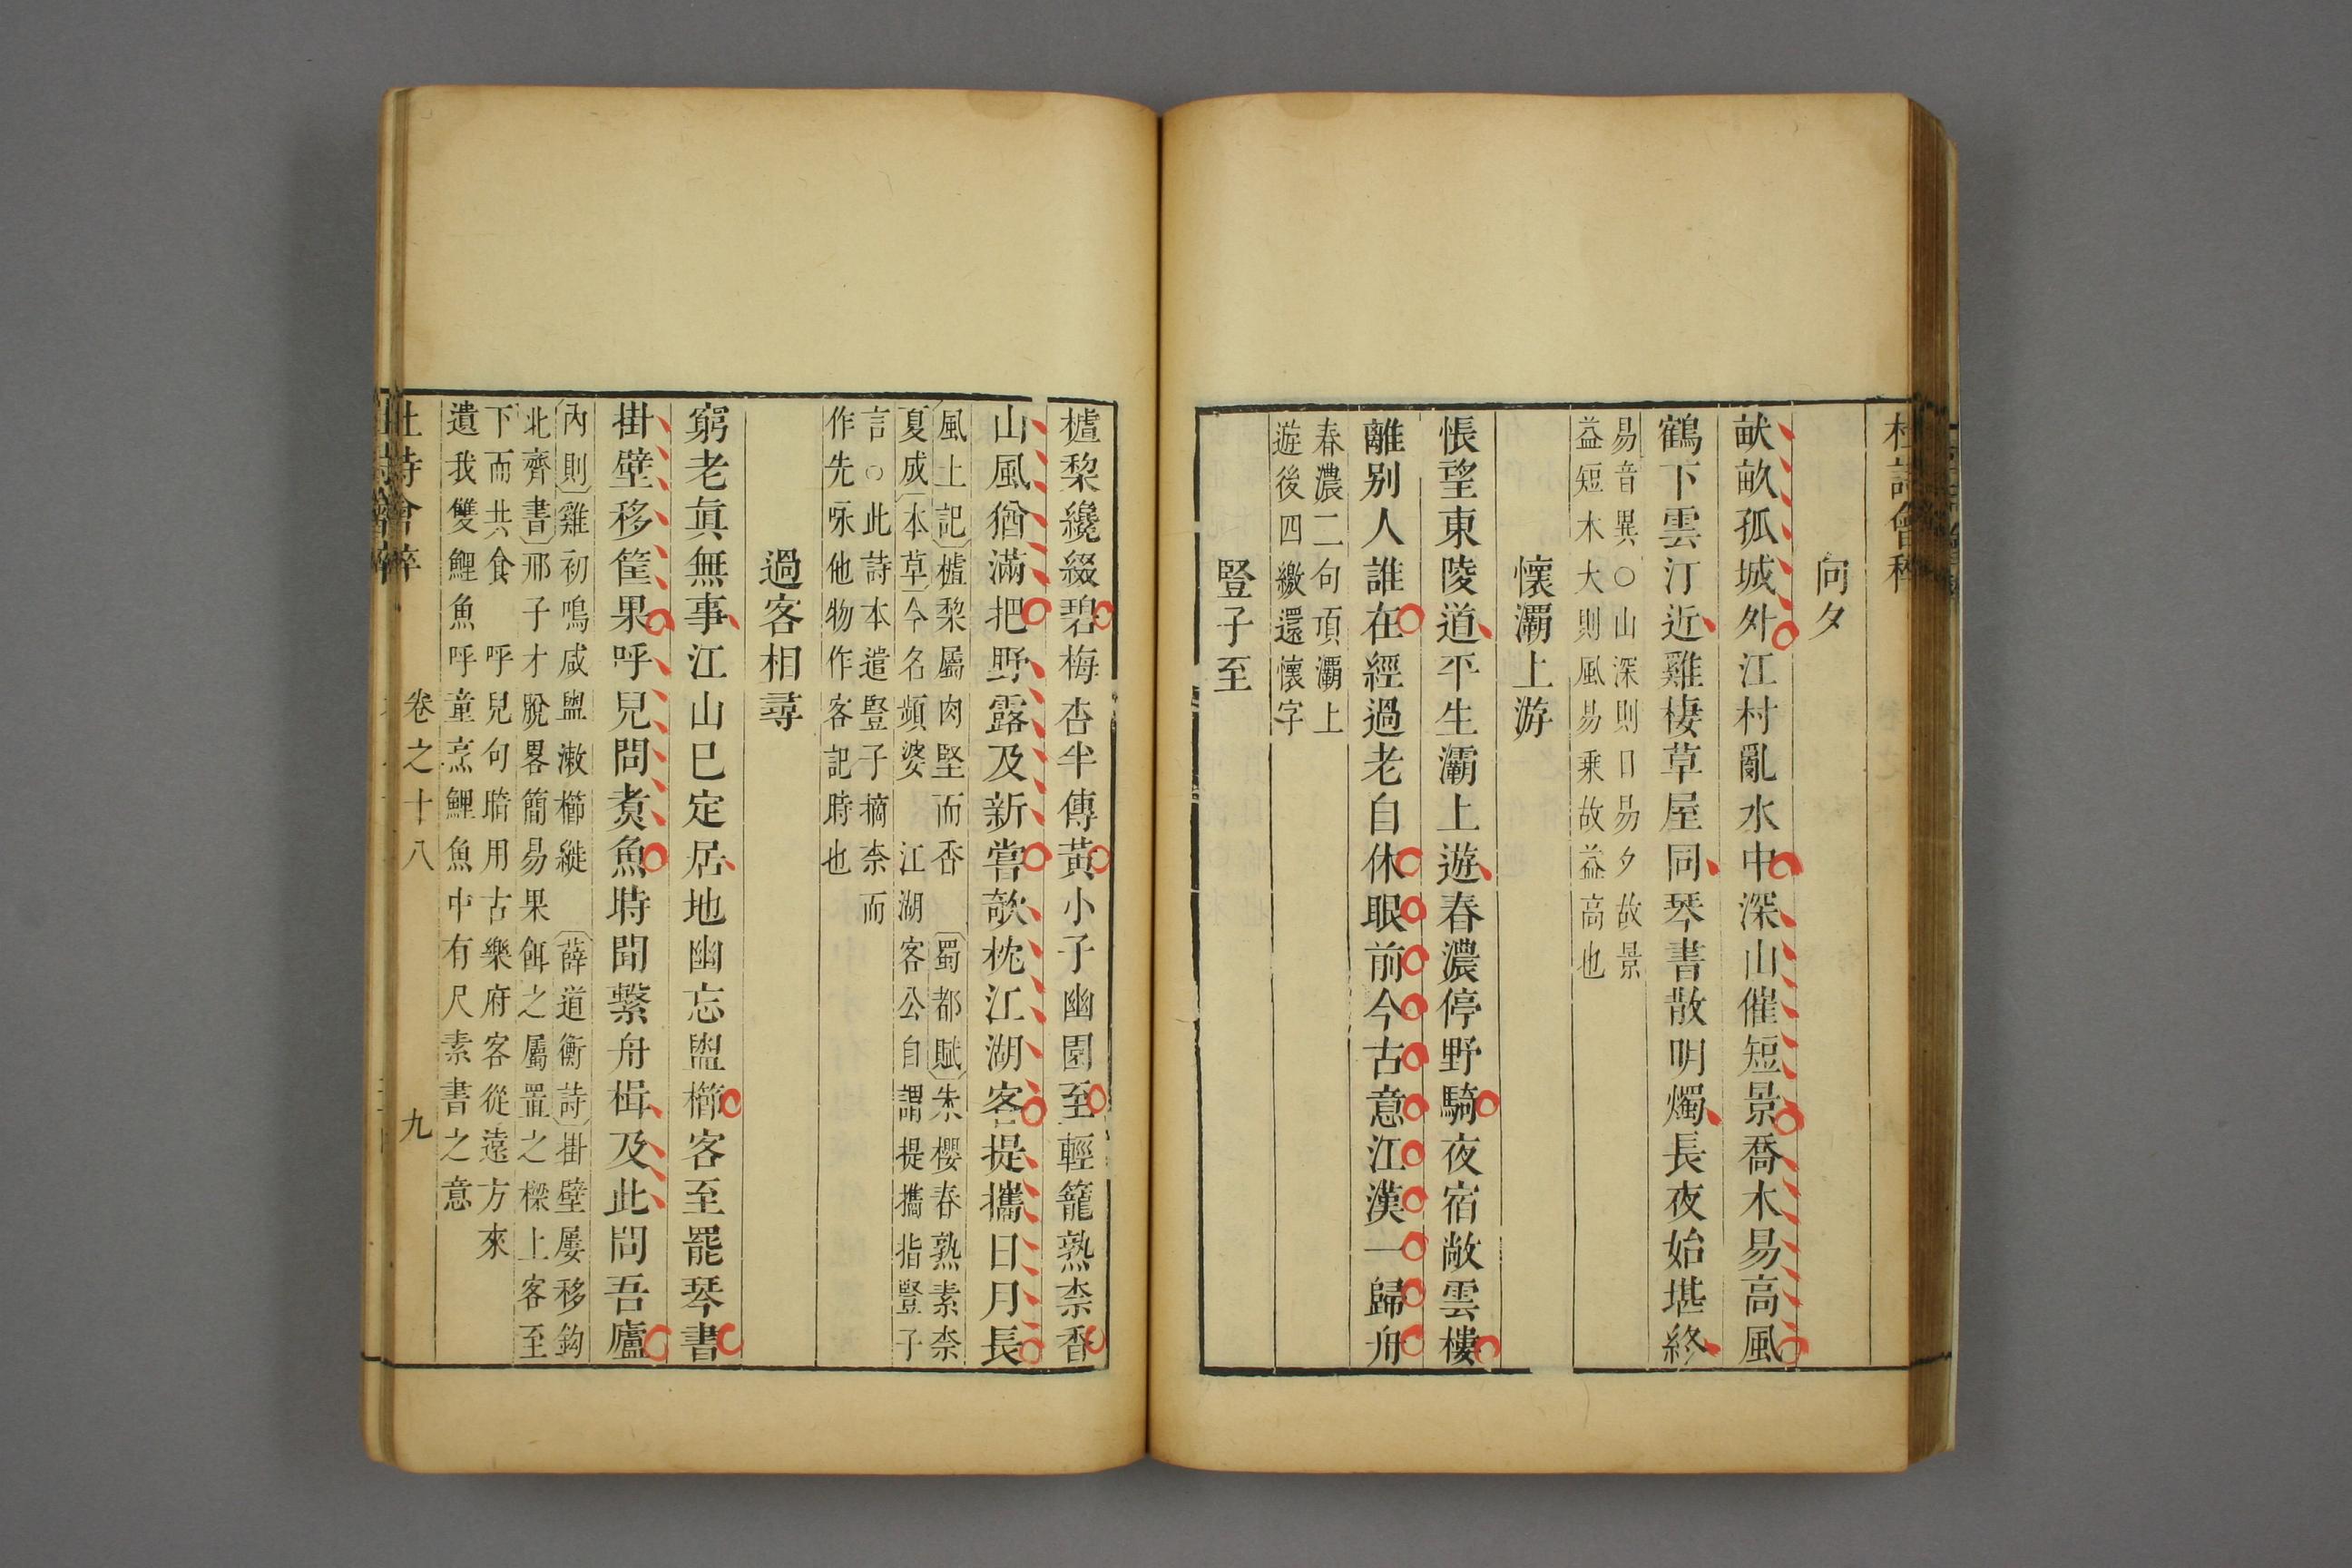 杜詩會稡
向夕
畎畝孤城外江村亂水中深山催短景喬木易高風
鶴下雲汀近雞棲草屋同琴書散明燭長夜始堪終
易音異○山深則日易夕故景
益短木大則風易乗故益高也
懷灞上游
悵望東陵道平生灞上遊春濃停野騎夜宿敞雲樓
離别人誰在經過老自休眼前今古意江漢一歸舟
春濃二句項灞上
遊後四繳還懷字
豎子至
樝棃纔綴碧梅杏半傳黃小子幽園至輕籠熟柰香
山風猶滿把野露及新嘗欹枕江湖客提攜日月長
風土記樝棃屬肉堅而香 蜀都賦朱櫻春熟素柰
夏成本草今名頻婆 江湖客公自謂提攜指豎子
言○此詩本遣豎子摘柰而
作先咏他物作客記時也
過客相尋
窮老眞無事江山已定居地幽忘盥櫛客至罷琴書
掛壁移筐果呼兒問煑魚時聞繫舟楫及此問吾廬
內則雞初鳴咸盥漱櫛縰 薛道衡詩掛壁屢移鈎
北齊書邢子才脫畧簡易果餌之屬置之樑上客至
下而共食 呼兒句暗用古樂府客從遠方來
遺我雙鯉魚呼童烹鯉魚中有尺素書之意
杜詩會稡 卷之十八 九